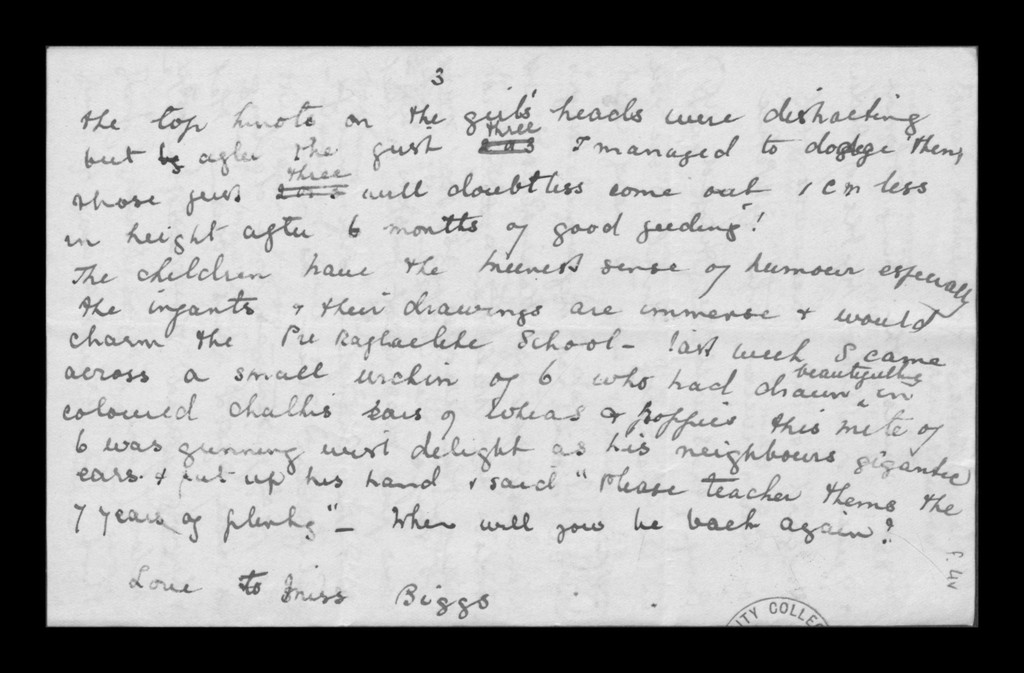 3
the top knots on the girls' heads were distracting
but by after the first three I managed to dodge them
those first three will doubtless come out 1 cm less
in height after 6 months of good feeding!
The children have the keenest sense of humour especially
the infants & their drawings are immense & would
charm the Pre Raphaelite School - last week I came
across a small urchin of 6 who had drawn beautifully in
coloured chalks ears of wheat & poppies this mite of
6 was grinning with delight at his neighbours gigantic
ears & put up his hand & said "Please teacher thems the
7 years of plenty" - When will you be back again?
Love to Miss Biggs
ITY COLLE